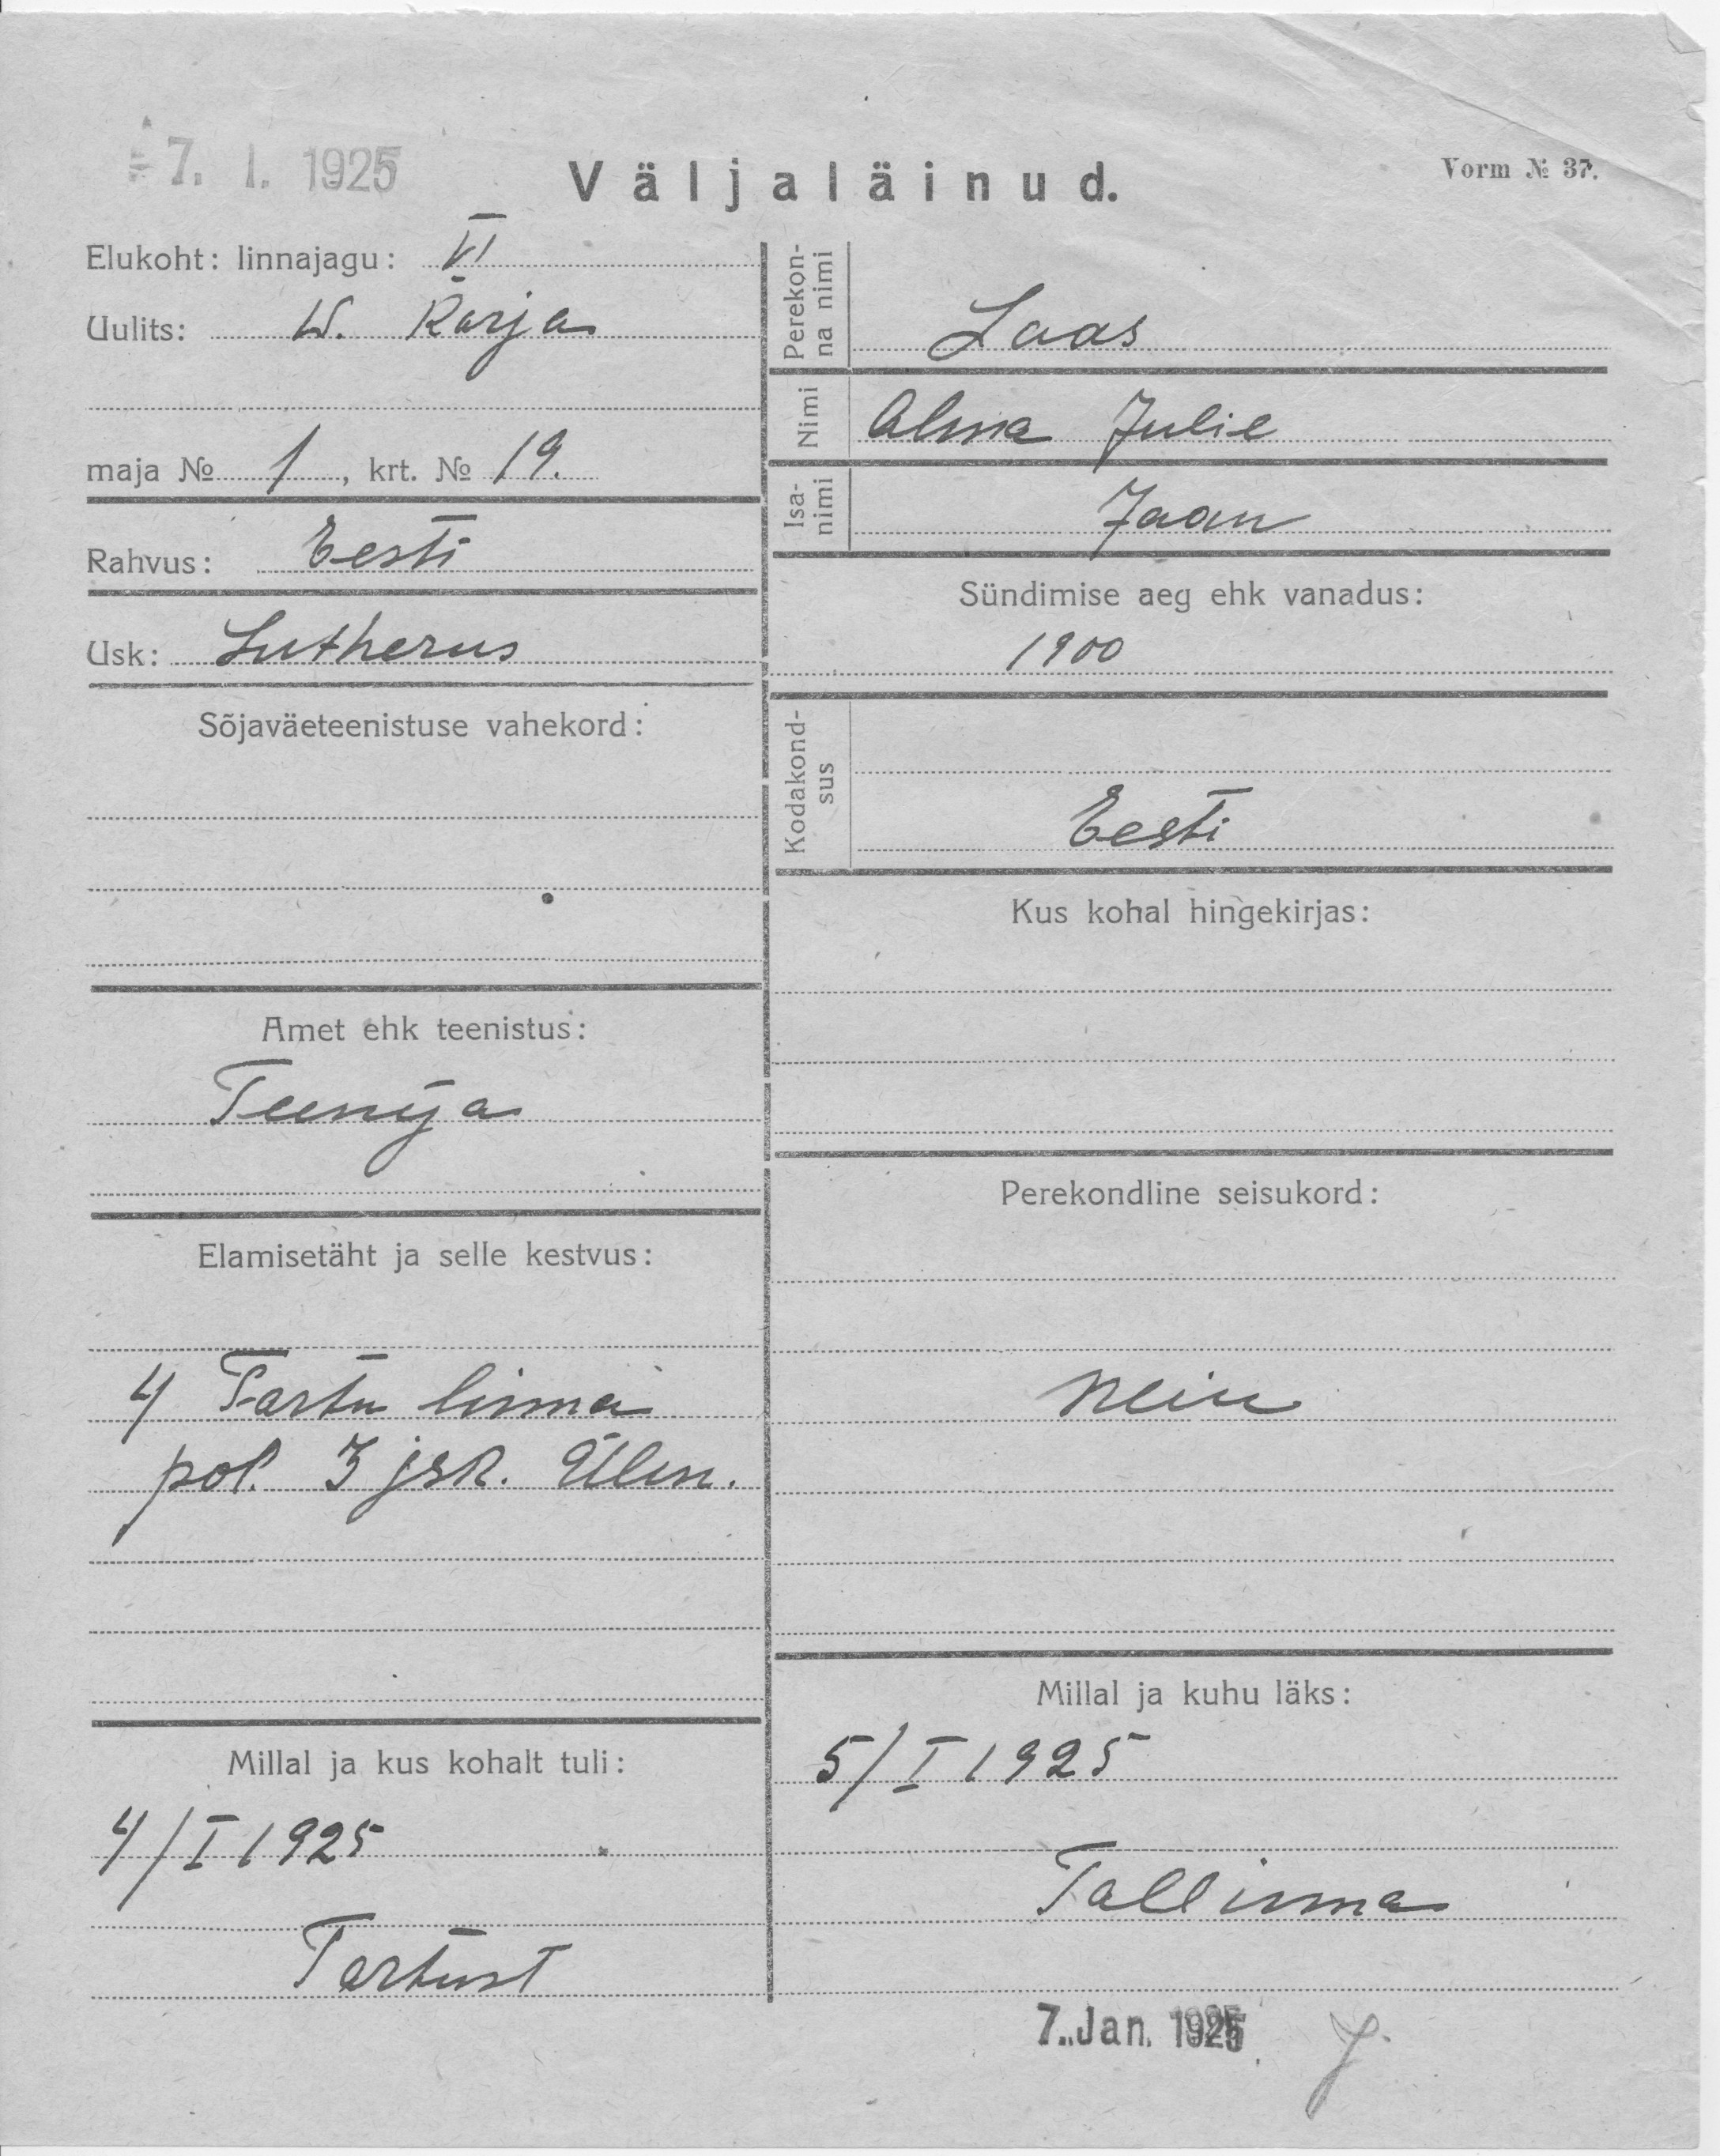 7. I. 1925
Väljaläinud.
Vorm № 37.
Elukoht: linnajagu: VI
Uulits: W. Karja
maja № 1, krt. № 19.
Rahvus: Eesti
Usk: Lutherus
Sõjaväeteenistuse vahekord:
Amet ehk teenistus:
Teenija
Elamisetäht ja selle kestvus:
4 Tartu linna
pol. 3 jsk. Ülem.
Millal ja kus kohalt tuli:
4/I 1925
Tartust
Perekon-
na nimi
Laas
Nimi Alma Julie
Isa-
nimi
Jaan
Sündimise aeg ehk vanadus:
1900
Kodakond-
sus
Eesti
Kus kohal hingekirjas:
Perekondline seisukord:
neiu
Millal ja kuhu läks:
5/I 1925
Tallinna
7. Jan. 1925